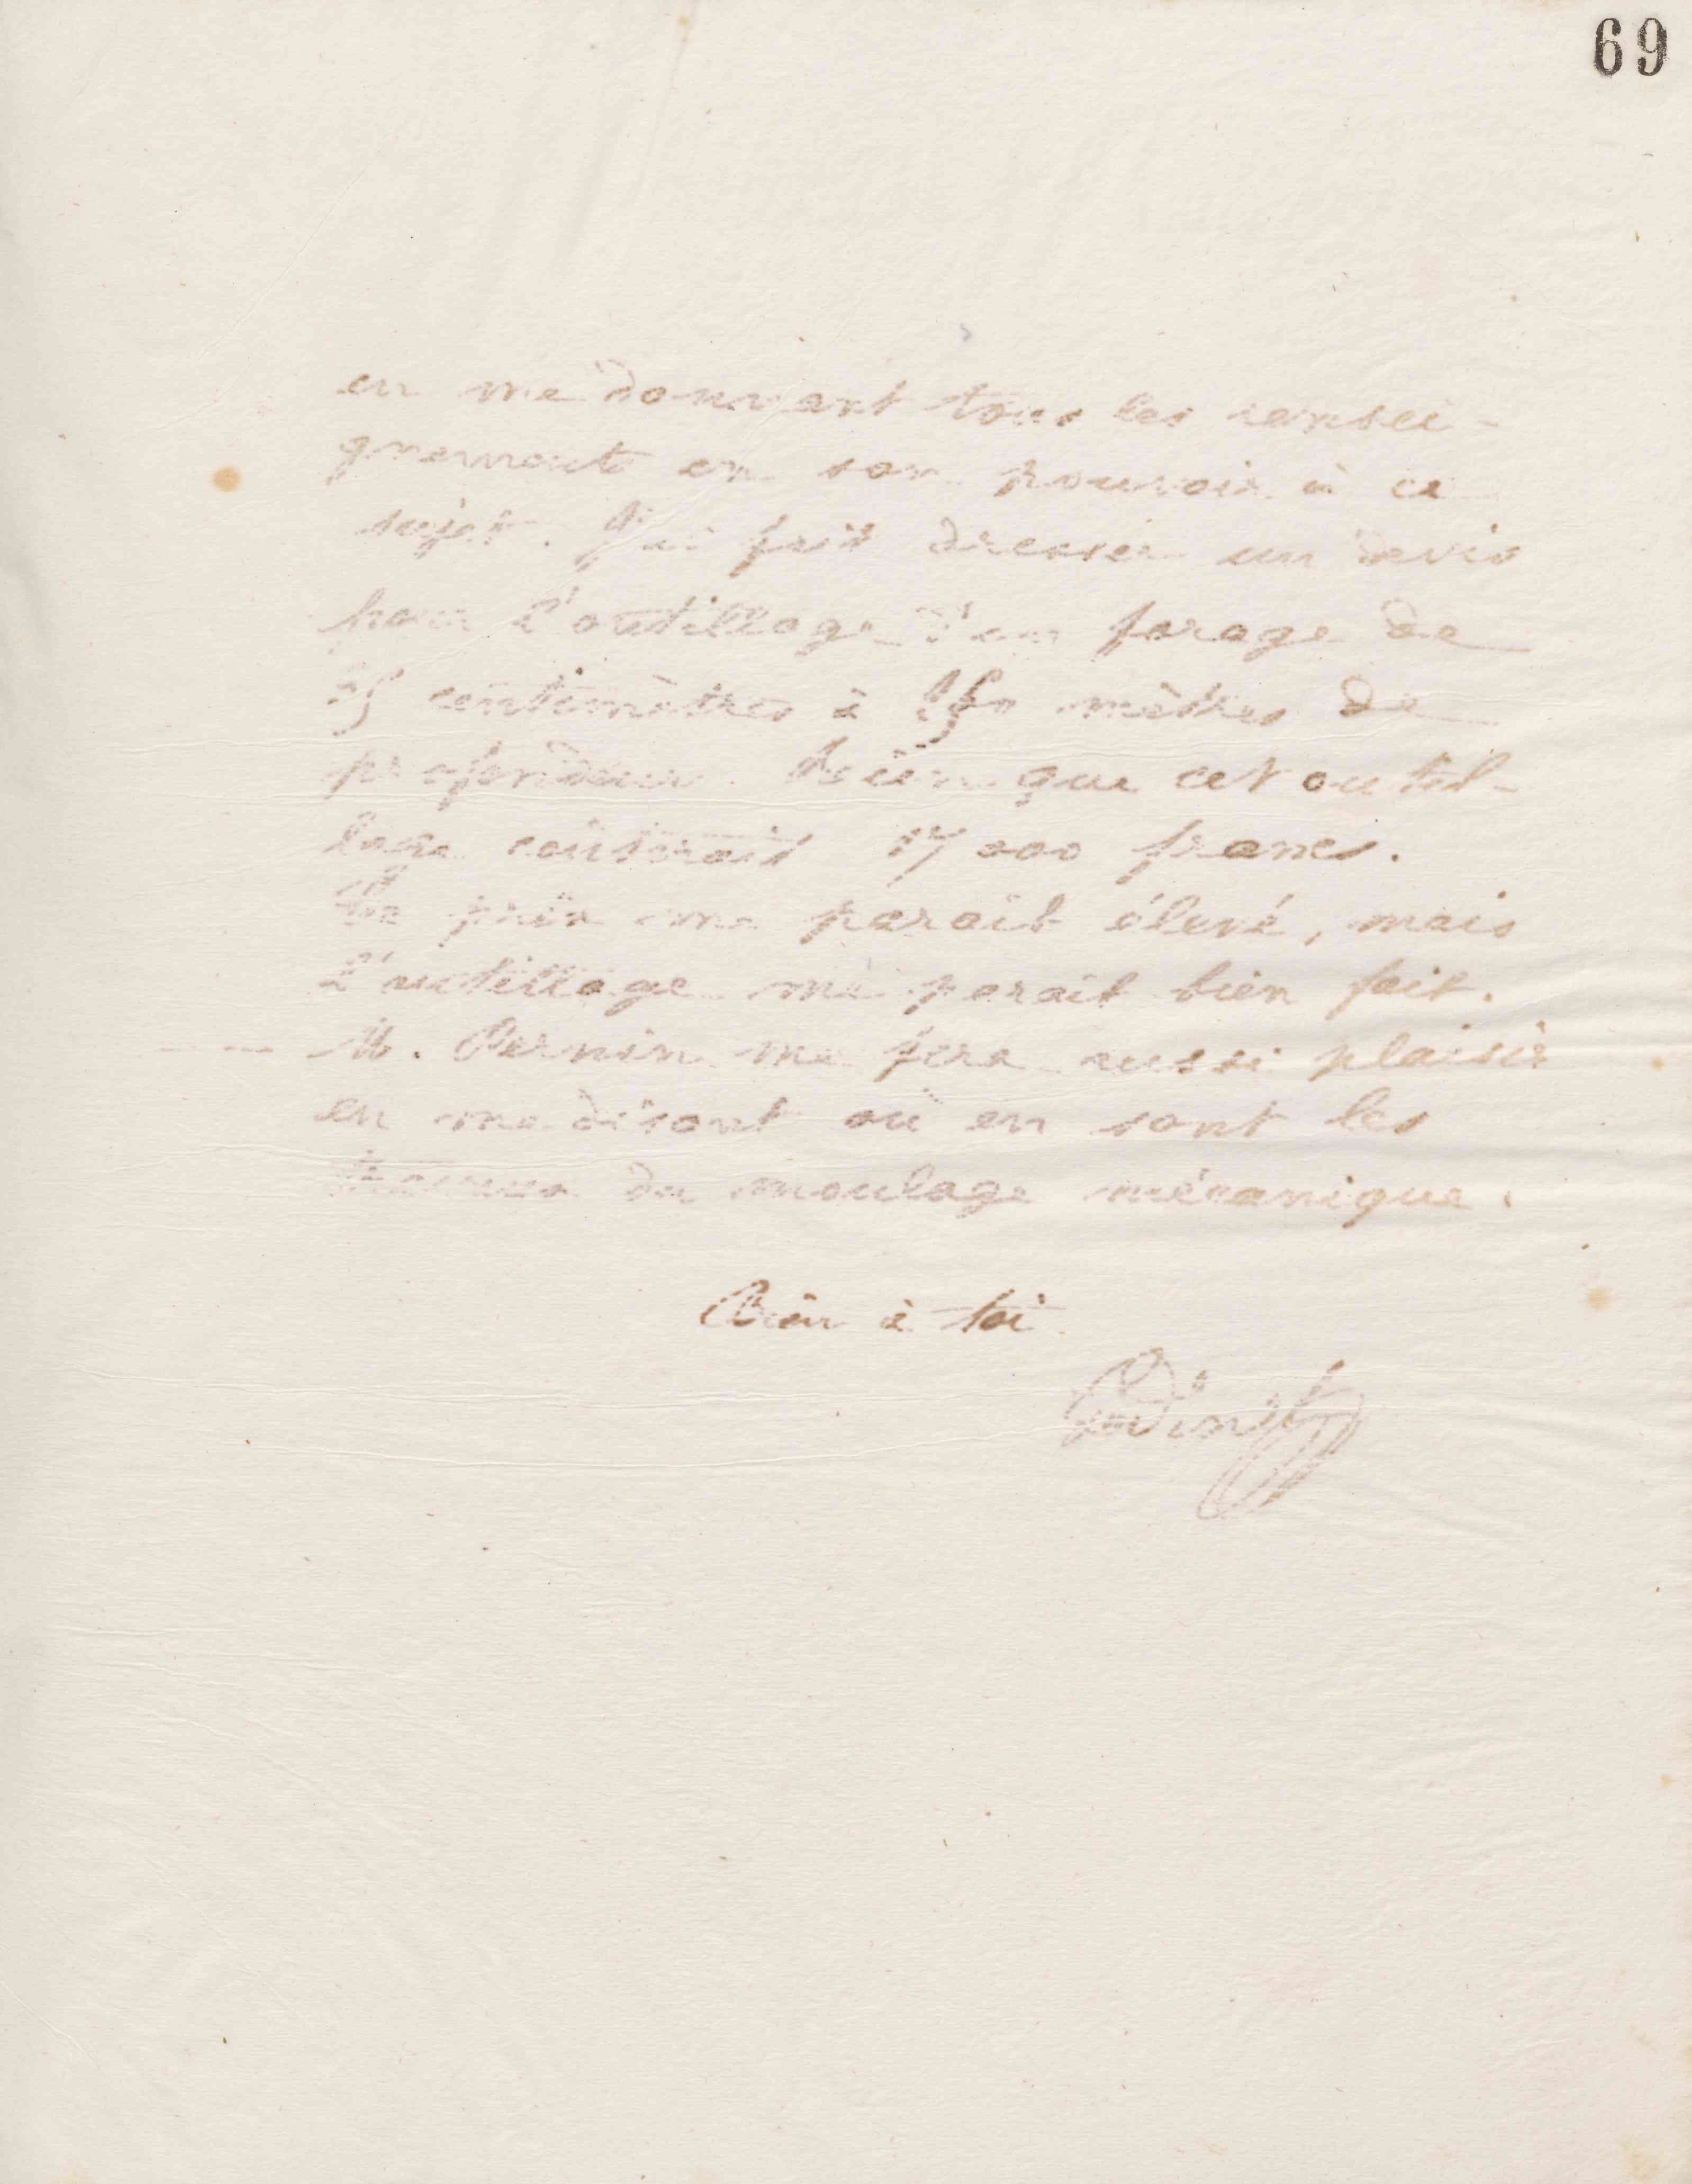 69
en me donnant tous les rensei-
gnements en son pouvoir à ce
sujet. J'ai fait dresser un devis
pour l'outillage d'un forage de
25 centimètres à 150 mètres de
profondeur. Rien que cet outil-
lage coûterait 17 000 francs.
Le prix me paraît élevé, mais
l'outillage me paraît bien fait.
M. Pernin me fera aussi plaisir
en me disant où en sont les
travaux du moulage mécanique.
Bien à toi
Godin